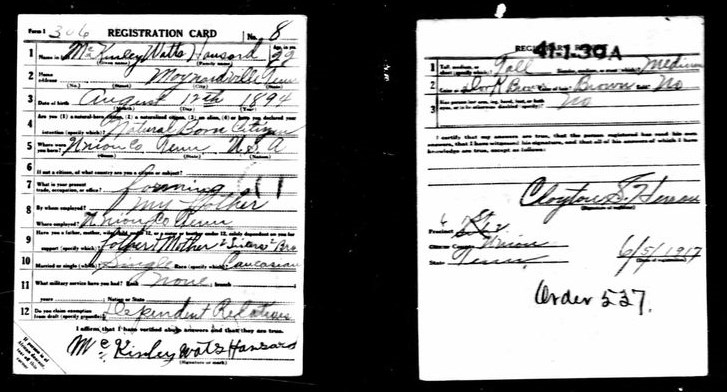 Form 1 306 REGISTRATION CARD No. 8
1 Name in full McKinley Watts Hansard Age, in yrs 22
(Given name) (Family name)
2 Home address Maynardville Tenn
(No.) (Street) (City) (State)
3 Date of birth August 12th 1894
(Month) (Day) (Year)
4 Are you (1) a natural-born citizen, (2) a naturalized citizen, (3) an alien, (4) or have you declared your
intention (specify which)? Natural Born Citizen
5 Where were you born? Union Co Tenn U.S.A
(Town) (State) (Nation)
6 If not a citizen, of what country are you a citizen or subject?
7 What is your present trade, occupation, or office? farming
8 By whom employed? My Father
Where employed? Union Co Tenn
9 Have you a father, mother, wife, child under 12, or a sister or brother under 12, solely dependent on you for
support (specify which)? Father Mother 2 Sisters 2 Bro
10 Married or single (which)? Single Race (specify which)? Caucasian
11 What military service have you had? Rank none; branch
years; Nation or State
12 Do you claim exemption from draft (specify grounds)? Dependent Relatives
I affirm that I have verified above answers and that they are true.
McKinley Wats Hansard
(Signature or mark)
If person is of African descent, tear off this corner
REGISTRAR'S REPORT
41-1-39 A
1 Tall, medium, or short (specify which)? Tall Slender, medium, or stout (which)? Medium
2 Color of eyes? Brown Color of hair? Brown Bald? No
3 Has person lost arm, leg, hand, foot, or both eyes, or is he otherwise disabled (specify)? No
I certify that my answers are true, that the person registered has read his own
answers, that I have witnessed his signature, and that all of his answers of which I have
knowledge are true, except as follows:
(Signature of registrar)
Precinct 6
City or County Union
State Tenn 6/5/1917
(Date of registration)
Order 537.